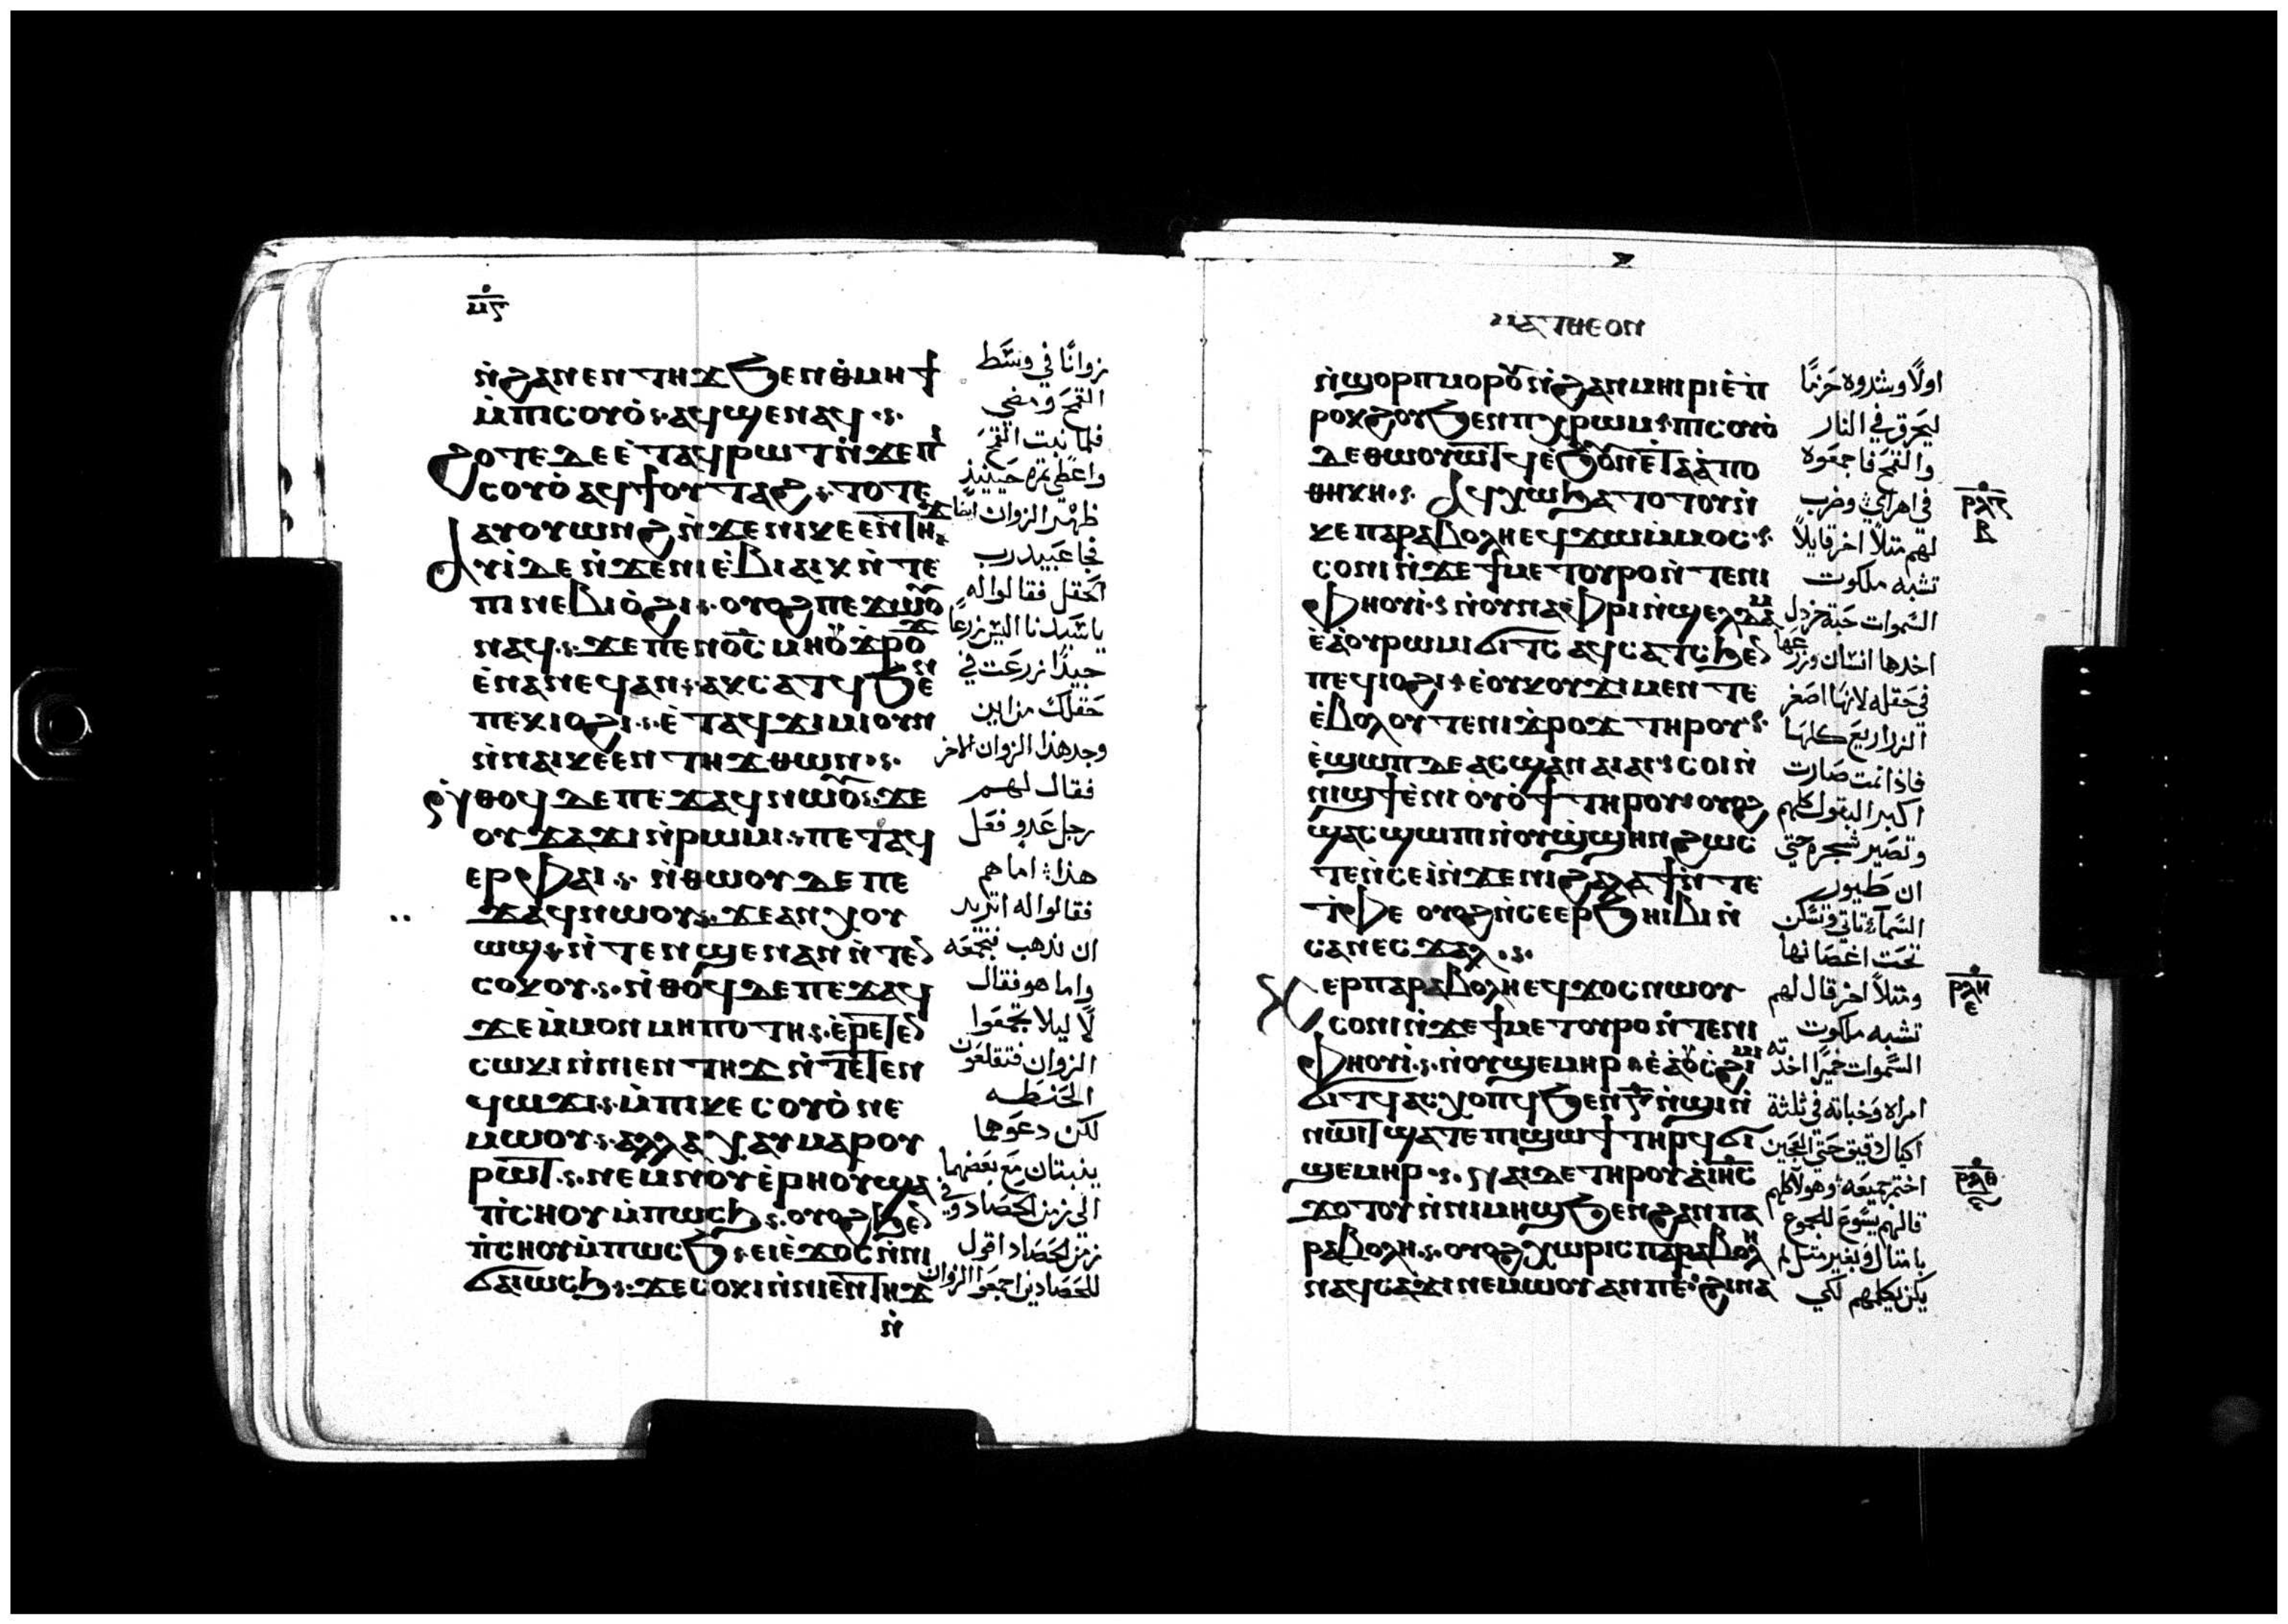 ⲙ̅ⲋ̅
ⲛ̀ϩⲁⲛⲉⲛⲧⲏϫ ϧⲉⲛⲑⲙⲏϯ
ⲙ̀ⲡⲓⲥⲟⲩⲟ̀ ⲁϥϣⲉⲛⲁϥ
ϩⲟⲧⲉ ⲇⲉ ⲉ̀ⲧⲁϥⲣⲱⲧ ⲛ̀ϫⲉⲡⲓ
ⲥⲟⲩⲟ̀ ⲁϥϯⲟⲩⲧⲁϩ ⲧⲟⲧⲉ
ⲁⲩⲟⲩⲱⲛϩ ⲛ̀ϫⲉⲛⲓⲕⲉⲉⲛⲧⲏϫ
ⲁⲩⲓ̀ ⲇⲉ ⲛ̀ϫⲉⲛⲓⲉ̀ⲃⲓⲁⲓⲕ ⲛ̀ⲧⲉ
ⲡⲓⲛⲉⲃⲓⲟ̀ϩⲓ ⲟⲩⲟϩ ⲡⲉϫⲱⲟⲩ
ⲛⲁϥ ϫⲉ ⲡⲉⲛⲟ̅ⲥ̅ ⲙⲏ ⲟⲩϫⲣⲟϫ
ⲉ̀ⲛⲁⲛⲉϥ ⲁⲛ ⲁⲕⲥⲁⲧϥ ϧⲉⲛ
ⲡⲉⲕⲓⲟϩⲓ ⲉ̀ⲧⲁϥϫⲓⲙⲓ ⲟⲩⲛ
ⲛ̀ⲛⲁⲓⲕⲉⲉⲛⲧⲏϫ ⲑⲱⲛ
ⲛ̀ⲑⲟϥ ⲇⲉ ⲡⲉϫⲁϥ ⲛⲱⲟⲩ ϫⲉ
ⲟⲩϫⲁϫⲓ ⲛ̀ⲣⲱⲙⲓ ⲡⲉⲧⲁϥ
ⲉⲣⲫⲁⲓ ⲛ̀ⲑⲱⲟⲩ ⲇⲉ ⲡⲉ
ϫⲁϥ ⲛⲱⲟⲩ ϫⲉ ⲁⲛ ⲭⲟⲩ
ⲱϣ ⲛ̀ⲧⲉⲛϣⲉⲛⲁⲛ ⲛ̀ⲧⲉⲛ
ⲥⲟⲕⲟⲩ ⲛ̀ⲑⲟϥ ⲇⲉ ⲡⲉϫⲁϥ
ϫⲉ ⲙ̀ⲙⲟⲛ ⲙⲏⲡⲟⲧⲏⲥ ⲉⲣⲉⲧⲉⲛ
ⲥⲱⲕⲓ ⲛ̀ⲛⲓⲉⲛⲧⲏϫ ⲛ̀ⲧⲉⲧⲉⲛ
ϥⲱϫⲓ ⲙ̀ⲡⲓⲕⲉⲥⲟⲩⲟ̀ ⲛⲉ
ⲙⲱⲟⲩ ⲁⲗⲗⲁ ⲭⲁⲩ ⲙⲁⲣⲟⲩ
ⲣⲱⲧ ⲛⲉⲙ ⲛⲟⲩⲉ̀ⲣⲏⲟⲩ ϣⲁ
ⲡ̀ⲥⲏⲟⲩ ⲙ̀ⲡⲱⲥϧ ⲟⲩⲟϩ ϧⲉⲛ
ⲡ̀ⲥⲏⲟⲩ ⲙ̀ⲡⲱⲥϧ ⲉⲓⲉ̀ϫⲟⲥ ⲛ̀ⲛⲓ
ϭⲁⲓⲱⲥϧ ϫⲉ ⲥⲟⲕⲓ ⲛ̀ⲛⲓⲉⲛⲧⲏϫ
ⲛ̀
زوانًا في وسط
القمح ومضي
فلما نبت القمح
واعطي ثمره حينيذ
ظهر الزوان ايضا
فجا عبيد رب
الحقل فقالوا له
يا سيدنا اليس زرعا
جيدًا زرعت في
حقلك من اين
وجد هذا الزوان الاخر
فقال لهم
رجل عدو فعل
هذا اما هم
فقالوا له اتريد
ان نذهب نجمعه
واما هو فقال
لا ليلا تجمعوا
الزوان فتقلعون
الحنطه
لكن دعوهما
ينبتان مع بعضهما
الي زمن الحصاد وفي
زمن الحصاد اقول
للحصادين اجمعوا الزوان
ⲙⲁⲧⲑⲉⲟⲛ
ⲛ̀ϣⲟⲣⲡ ⲙⲟⲣⲟⲩ ⲛ̀ϩⲁⲛⲙⲏⲓⲣⲓ ⲉ̀ⲡ
ⲣⲟⲕϩⲟⲩ ϧⲉⲛ ⲡⲓⲭⲣⲱⲙ ⲡⲓⲥⲟⲩⲟ̀
ⲇⲉ ⲑⲱⲟⲩⲱⲧϥ ⲉ̀ϧⲟⲩⲛ ⲉ̀ⲧⲁⲁ̀ⲡⲟ
ⲑⲏⲕⲏ ⲁϥⲭⲱ ϧⲁⲧⲟⲧⲟⲩ ⲛ̀
ⲕⲉⲡⲁⲣⲁⲃⲟⲗⲏ ⲉϥϫⲱ ⲙ̀ⲙⲟⲥ
ⲥⲟⲛⲓ ⲛ̀ϫⲉ ϯⲙⲉⲧⲟⲩⲣⲟ ⲛ̀ⲧⲉⲛⲓ
ⲫⲏⲟⲩⲓ̀ ⲛ̀ⲟⲩⲛⲁⲫⲣⲓ ⲛ̀ϣⲉⲗⲧⲁⲙ
ⲉ̀ⲁⲟⲩⲣⲱⲙⲓ ϭⲓⲧⲥ ⲁϥⲥⲁⲧⲥ ϧⲉⲛ
ⲡⲉϥⲓⲟϩⲓ ⲉ̀ⲟⲩⲕⲟⲩϫⲓ ⲙⲉⲛ ⲧⲉ
ⲉ̀ⲃⲟⲗⲟⲩⲧⲉ ⲛⲓϫⲣⲟϫ ⲧⲏⲣⲟⲩ
ⲉ̀ϣⲱⲡ ⲇⲉ ⲁⲥϣⲁⲛⲁⲓⲁⲓ ⲥⲟⲓ ⲛ̀
ⲛⲓϣϯ ⲉ̀ⲛⲓⲟⲩⲟϯ ⲧⲏⲣⲟⲩ ⲟⲩⲟϩ
ϣⲁⲥϣⲱⲡⲓ ⲛ̀ⲟⲩϣ̀ϣⲏⲛ ϩⲱⲥ
ⲧⲉ ⲛ̀ⲥⲉⲓ̀ ⲛ̀ϫⲉⲛⲓϩⲁⲗⲁϯ ⲛ̀ⲧⲉ
ⲧ̀ⲫⲉ ⲟⲩⲟϩ ⲛ̀ⲥⲉⲉⲣϧⲏⲓⲃⲓ ⲛ̀
ⲥⲁⲛⲉⲥϫⲁⲗ
ⲕⲉⲡⲁⲣⲁⲃⲟⲗⲏ ⲉϥϫⲟⲥ ⲛⲱⲟⲩ
ⲥⲟⲛⲓ ⲛ̀ϫⲉ ϯⲙⲉⲧⲟⲩⲣⲟ ⲛ̀ⲧⲉⲛⲓ
ⲫⲏⲟⲩⲓ̀ ⲛ̀ⲟⲩϣⲉⲙⲏⲣ ⲉ̀ⲁⲟⲩⲥϩⲓⲙⲓ
ϭⲓⲧϥ ⲁⲥⲭⲟⲡϥ ϧⲉⲛ ⲅ̅ ⲛ̀ϣⲓ ⲛ̀
ⲛⲱⲓⲧ ϣⲁⲧⲉ ⲡⲓϣⲱϯ ⲧⲏⲣϥ ϭⲓ
ϣⲉⲙⲏⲣ ⲛⲁⲓ ⲇⲉ ⲧⲏⲣⲟⲩ ⲁⲓ̅ⲏ̅ⲥ̅
ϫⲟⲧⲟⲩ ⲛ̀ⲛⲓⲙⲏϣ ϧⲉⲛ ϩⲁⲛⲡⲁ
ⲣⲁⲃⲟⲗⲏ ⲟⲩⲟϩ ⲭⲱⲣⲓⲥ ⲡⲁⲣⲁⲃⲟⲗⲏ
ⲛⲁϥⲥⲁϫⲓ ⲛⲉⲙⲱⲟⲩ ⲁⲛ ⲡⲉ ϩⲓⲛⲁ
اولًا وشدوه حزمًا
ليحرق في النار
والقمح فاجمعوه
في اهراي وضرب
لهم مثلًا اخر قايلًا
تشبه ملكوت
السموات حبة خردل
اخدها انسان وزرعها
في حقله لانها اصغر
الزراريع كلها
فاذا نمت صارت
اكبر البقول كلهم
وتصير شجره حتي
ان طيور
السمآء تاتي وتسكن
تحت اغصانها
ومثلًا اخر قال لهم
تشبه ملكوت
السموات خميرًا اخدته
امراه وخباته في ثلثة
اكيال دقيق حتي العجين
اختمر جميعه وهولا كلهم
قالهم يسوع للجموع
بامثال وبغير مثل لم
يكن يكلمهم لكي
ⲣⲗⲍ
ⲃ
ⲣⲗⲏ
ⲉ
ⲣⲗⲑ
ⲋ